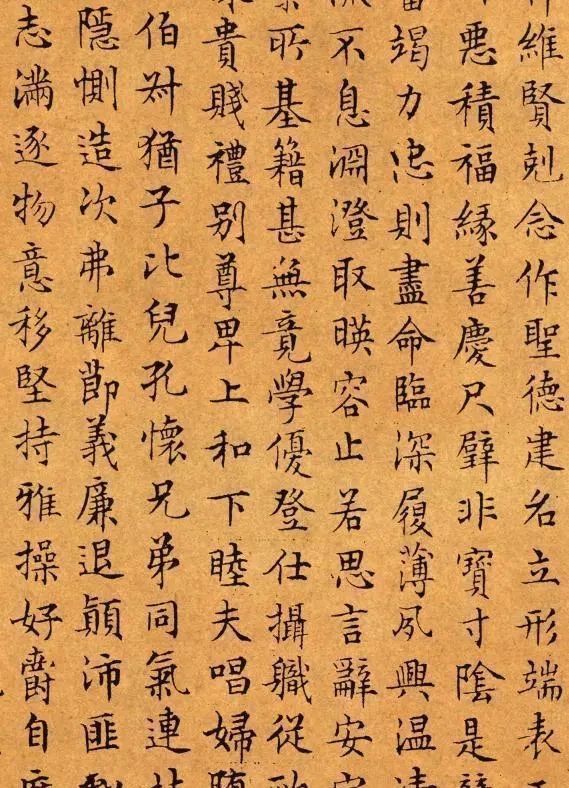 維賢剋念作聖德建名立形端表
悪積福縁善慶尺璧非寶寸陰是
當竭力忠則盡命臨深履薄夙興温凊
流不息淵澄取暎容止若思言辭安定
所基籍甚無竟學優登仕攝職從
貴賤禮別尊卑上和下睦夫唱婦
伯叔猶子比兒孔懷兄弟同氣連
隱惻造次弗離節義廉退顛沛匪
志滿逐物意移堅持雅操好爵自